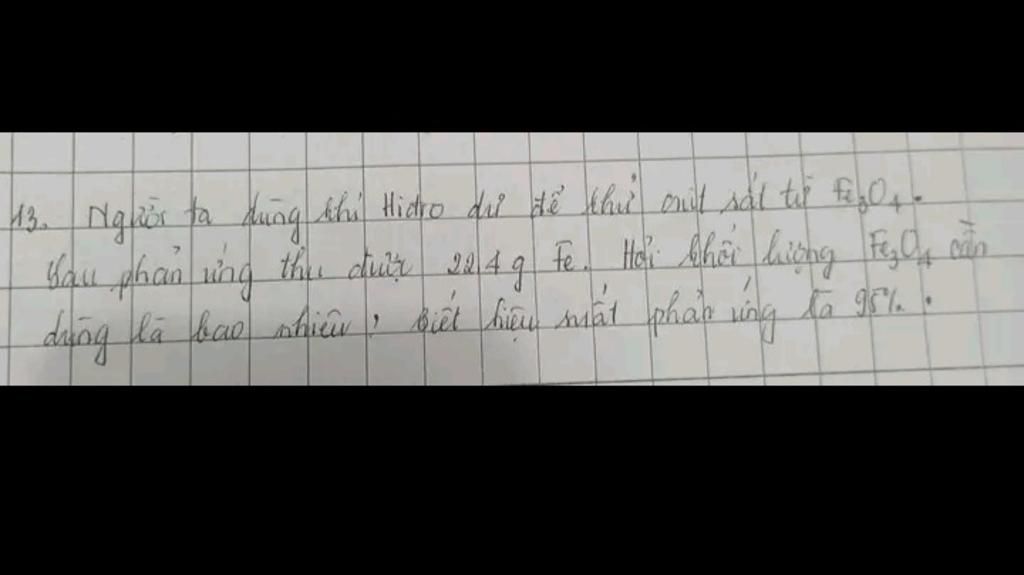 13. Người ta dùng khí Hidro dư để khử oxit sắt từ Fe3O4.
Sau phản ứng thu được 22,4 g Fe. Hỏi khối lượng Fe3O4 cần
dùng là bao nhiêu, biết hiệu suất phản ứng là 95%.